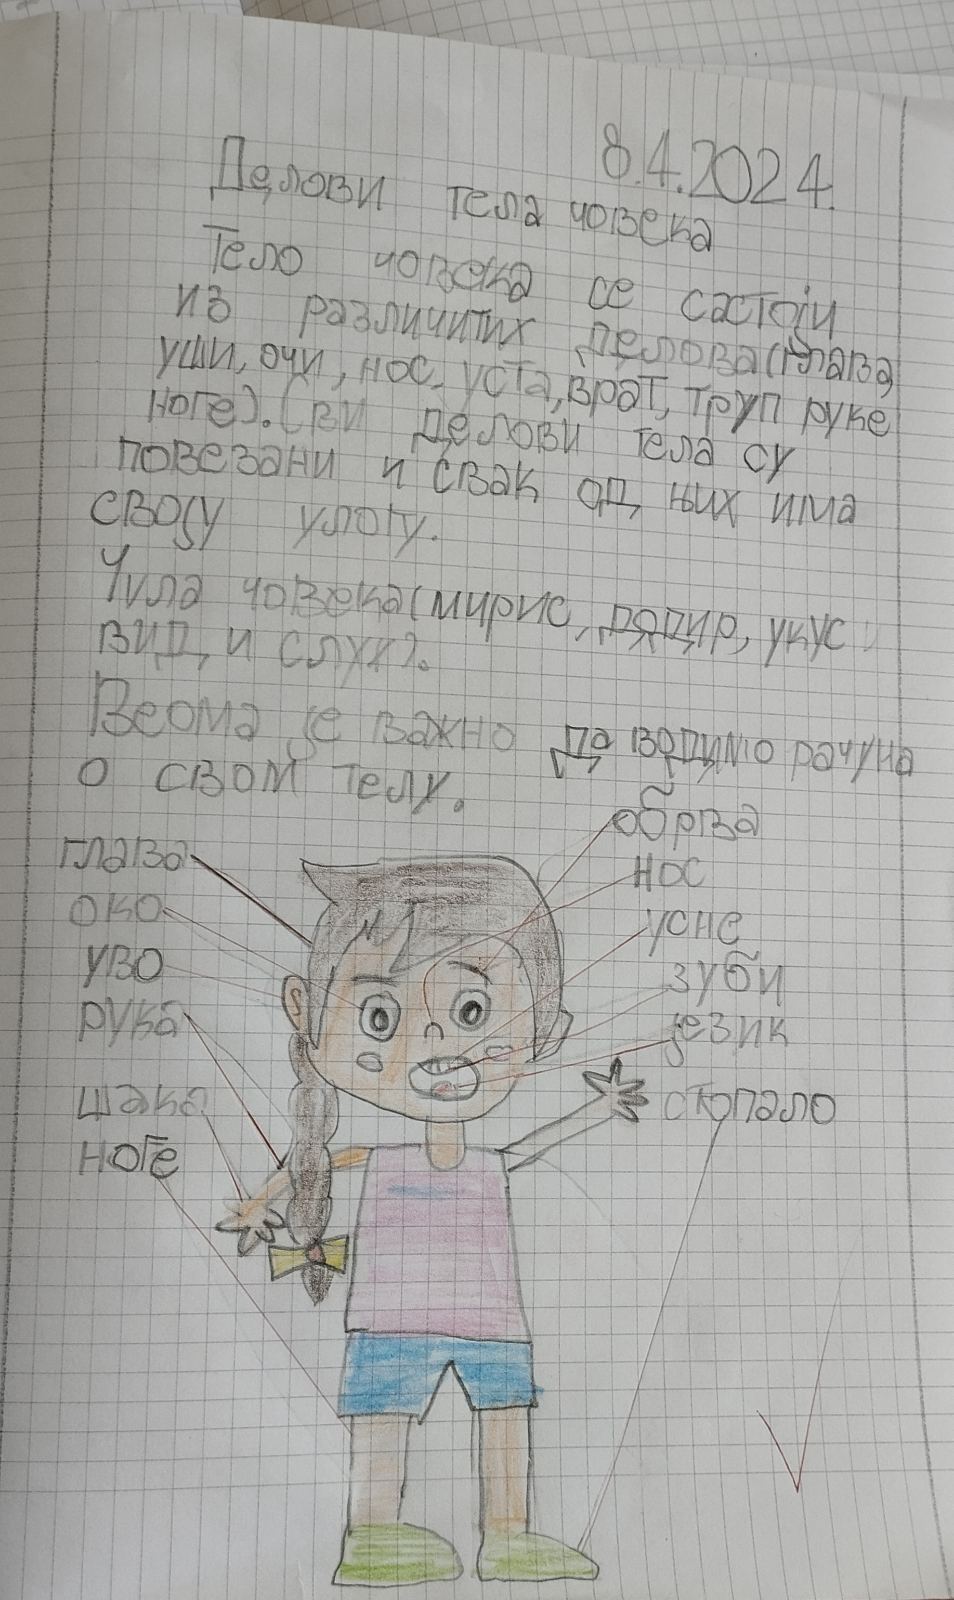 8.4.2024.
Делови тела човека
Тело човека се састоји
из различитих делова(глава,
уши, очи, нос, уста, врат, труп руке
ноге). Сви делови тела су
повезани и свак од њих има
своју улогу.
Чула човека(мирис, додир, укус
вид, и слух).
Веома је важно да водимо рачуна
о свом телу.
глава
око
уво
рука
шака
ноге
обрва
нос
усне
зуби
језик
стопало